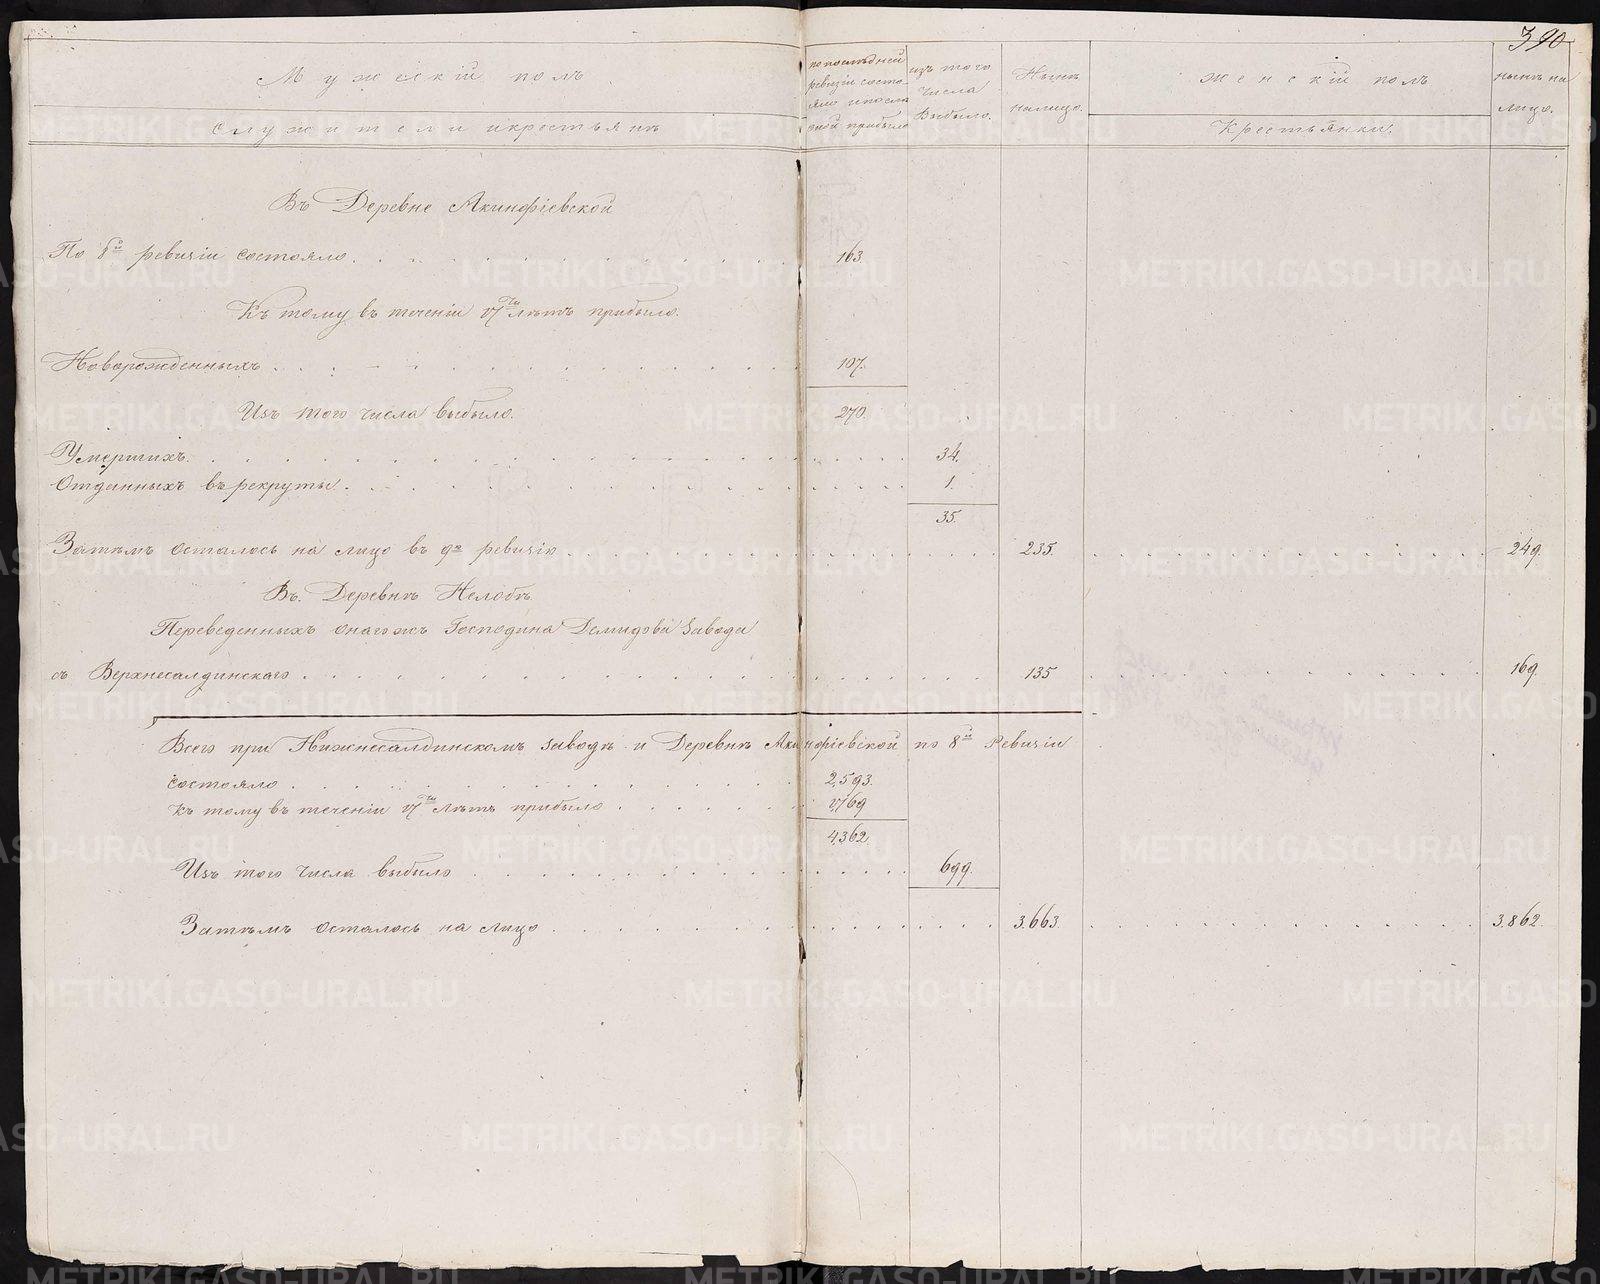 390
Мужескій полъ
служители и крестьянъ
по последней
ревизіи состо-
яло и после
оной прибыло
изъ того
числа
Выбыло.
Нынѣ
налицо.
женскій полъ
Крестьянки.
нынѣ на
лицо.
Въ Деревне Акинфіевской
По 8й ревизіи состояло. 163.
Къ тому въ теченіи 17ти лѣтъ прибыло.
Новорожденныхъ 107.
Изъ того числа выбыло. 270.
Умершихъ. 34.
Отданныхъ въ рекруты. 1.
35.
Затѣмъ осталось на лицо въ 9ю ревизію 235. 249.
Въ Деревнѣ Нелобѣ
Переведенныхъ онагожъ Господина Демидова завода
съ Верхнесалдинскаго 135 169.
Всего при Нижнесалдинскомъ заводѣ и Деревнѣ Акинфіевской по 8й Ревизіи
состояло 2,593.
къ тому въ теченіи 17ти лѣтъ прибыло 1,769
4,362
Изъ того числа выбыло 699.
Затѣмъ осталось на лицо 3.663. 3.862.
METRIKI.GASO-URAL.RU